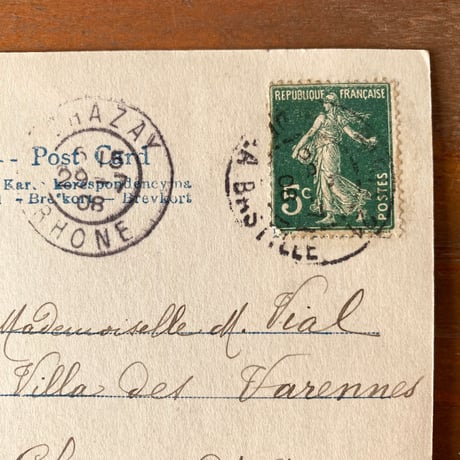 RÉPUBLIQUE FRANÇAISE
5c
POSTES
LA BASTILLE
HAZAY
15
29 - 7
08
RHONE
Post Card
Kar. korespondencyjna
- Brefkort - Brevkort
Mademoiselle M. Vial
Villa des Varennes